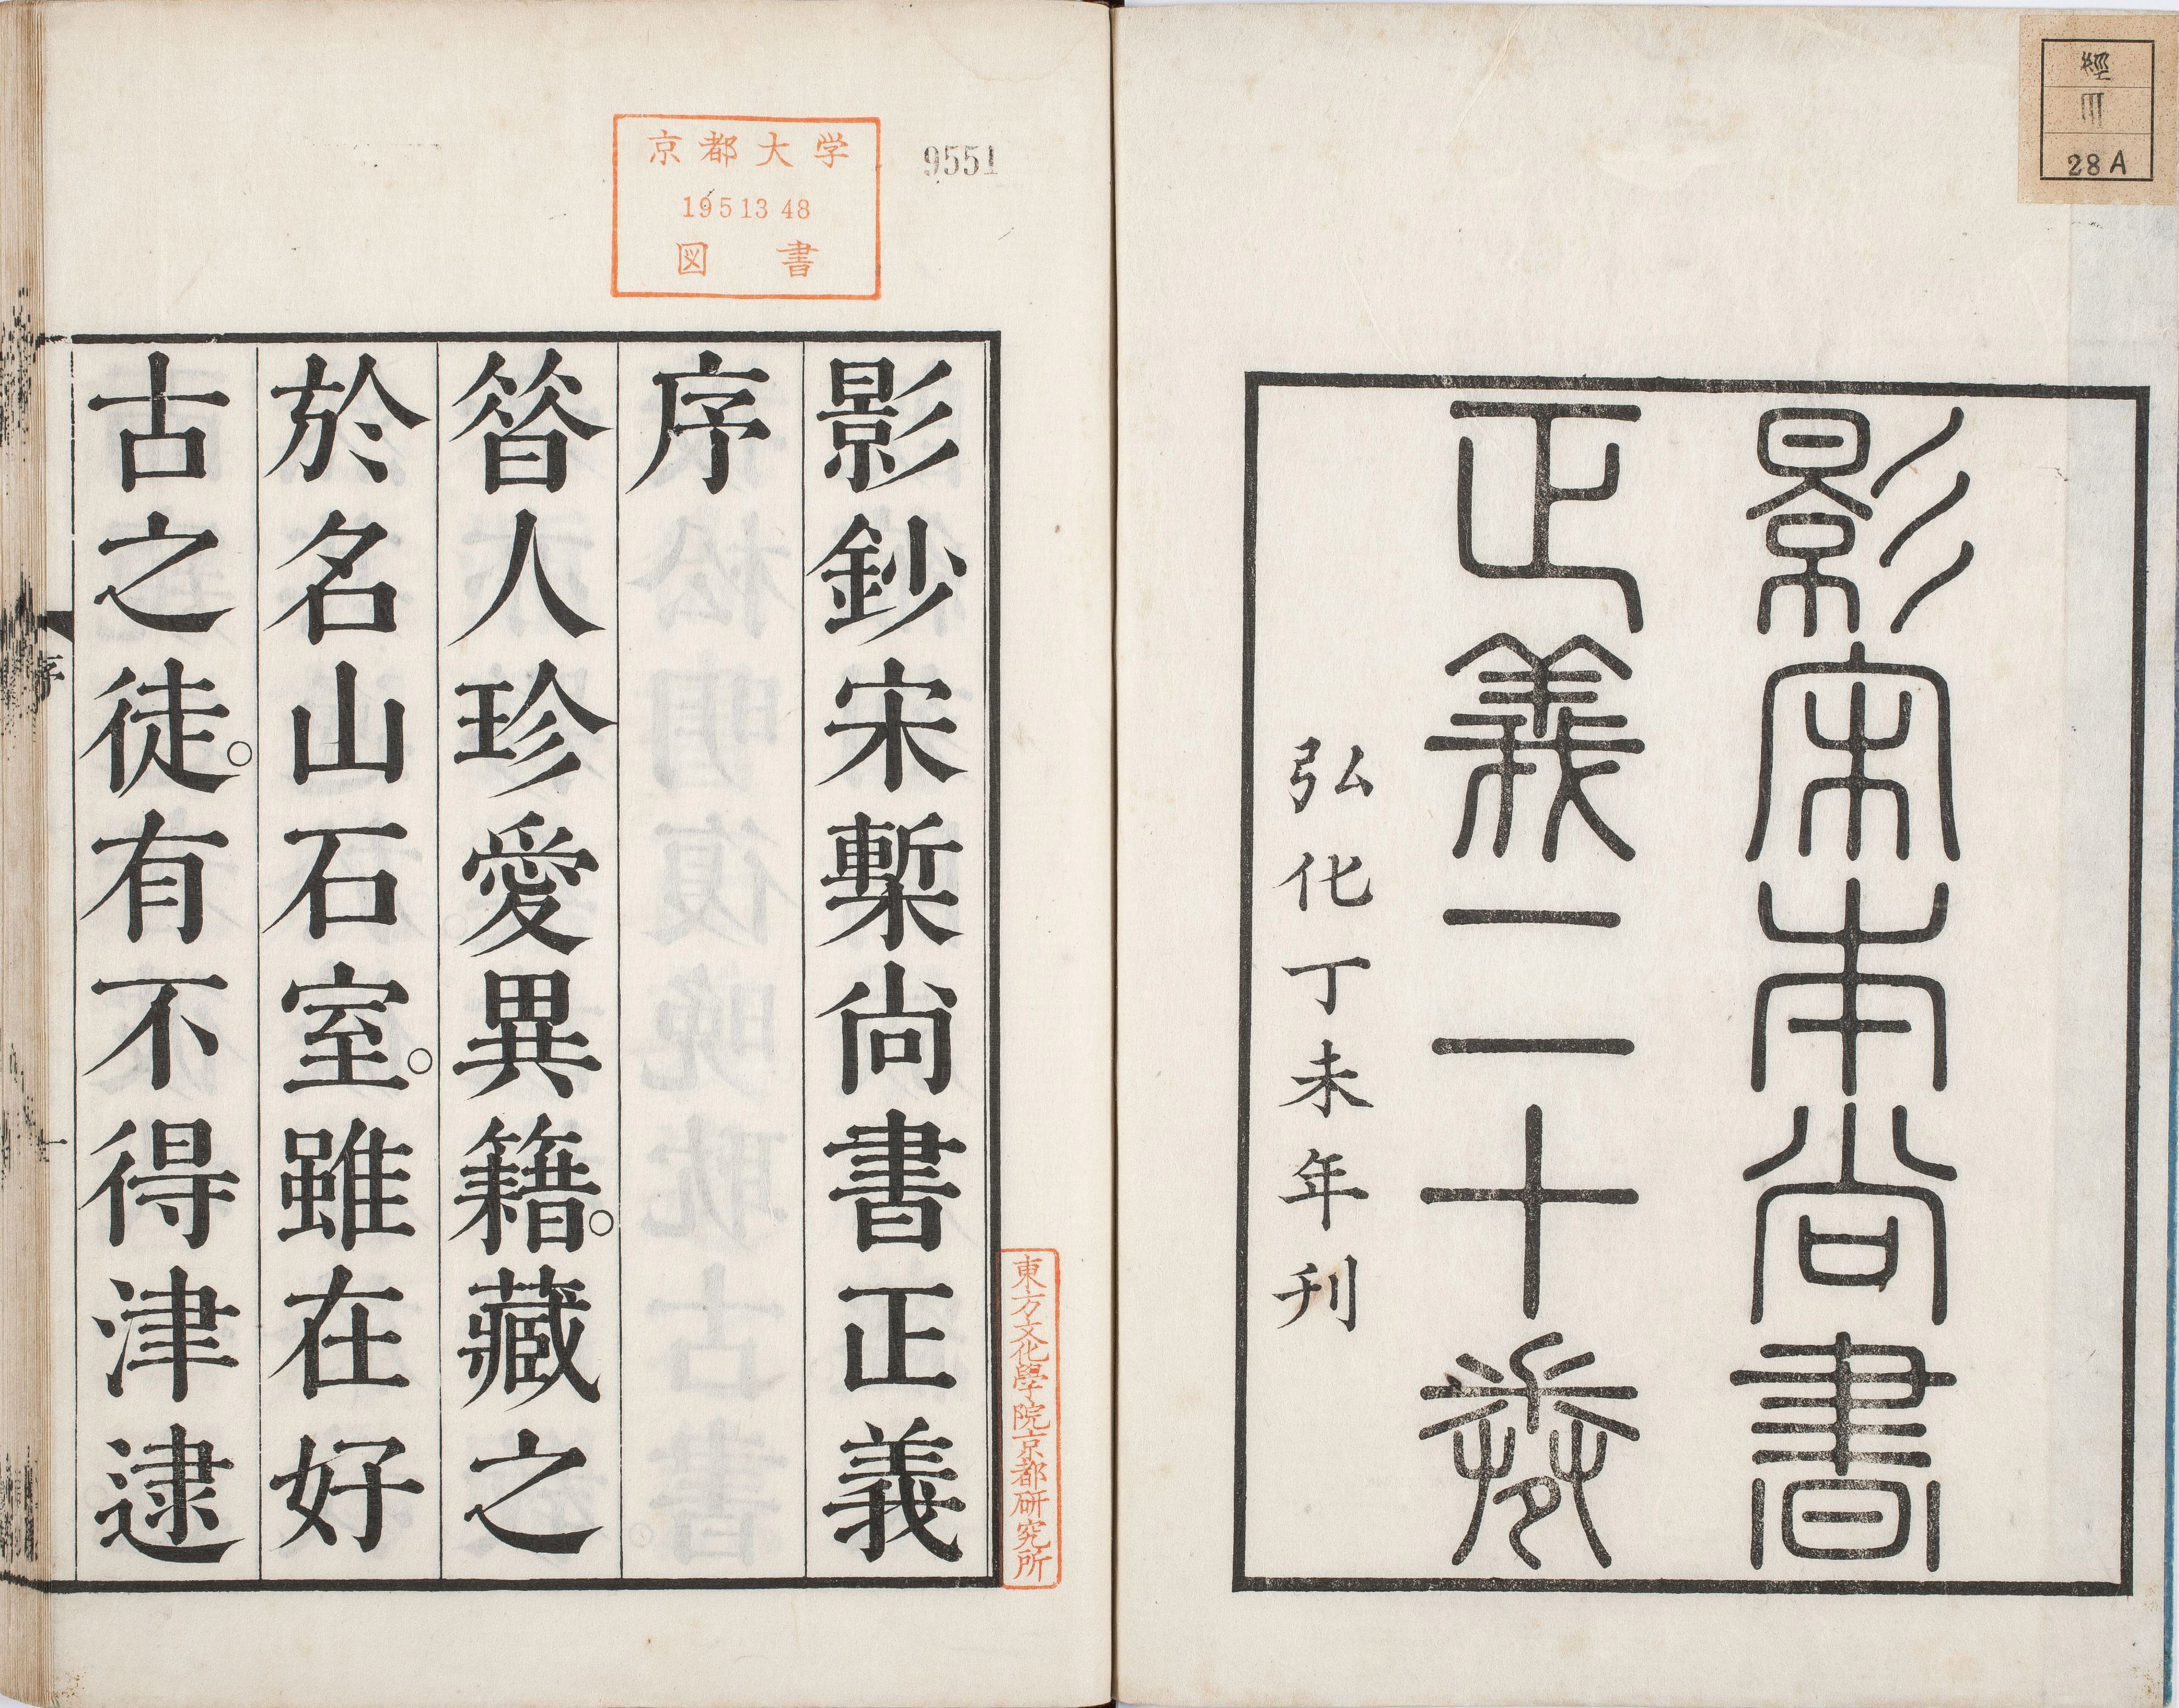 經
Ⅲ
28A
影宋本尚書
正義二十卷
弘化丁未年刊
9551
京都大学
1951348
図書
影鈔宋槧尚書正義
序
昝人珍愛異籍。藏之
於名山石室。雖在好
古之徒。有不得津逮
東方文化學院京都研究所
序
一